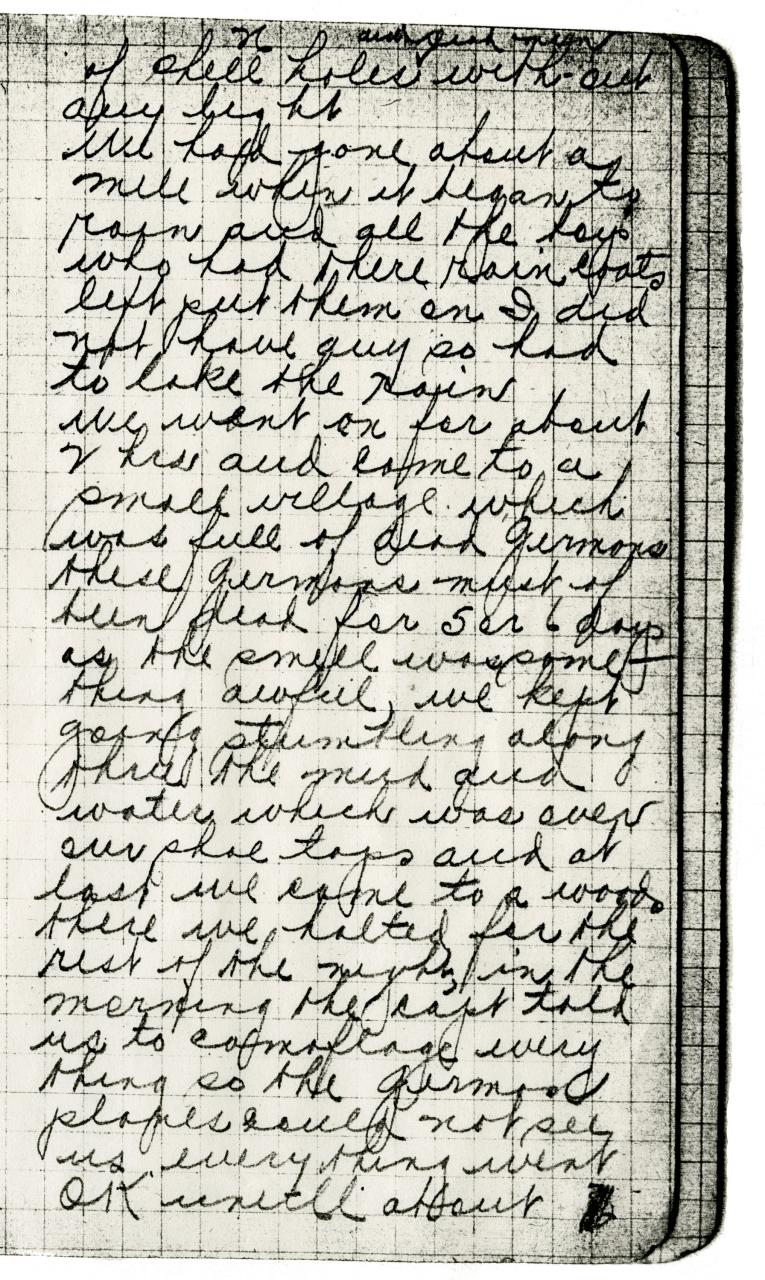 of shell holes with-out
any light
we had gone about a
mile when it began to
rain and all the boys
who had there rain coats
left put them on I did
not have any so had
to take the rain
we went on for about
2 hrs and come to a
small village which
was full of dead Germans
these Germans must of
been dead for 5 or 6 days
as the smell was some-
thing awful, we kept
going stumbling along
thru the mud and
water which was over
our shoe tops and at
last we come to a woods
there we halted for the
rest of the night, in the
morning the capt told
us to camoflage every
thing so the German
planes could not see
us everything went
OK untill about